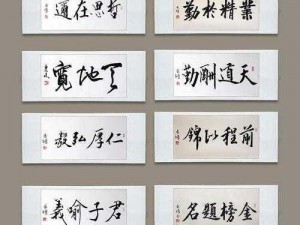 業精於勤
哲思在
天道酬勤
天地寬
前程似錦
仁厚弘毅
金榜題名
君子喻義